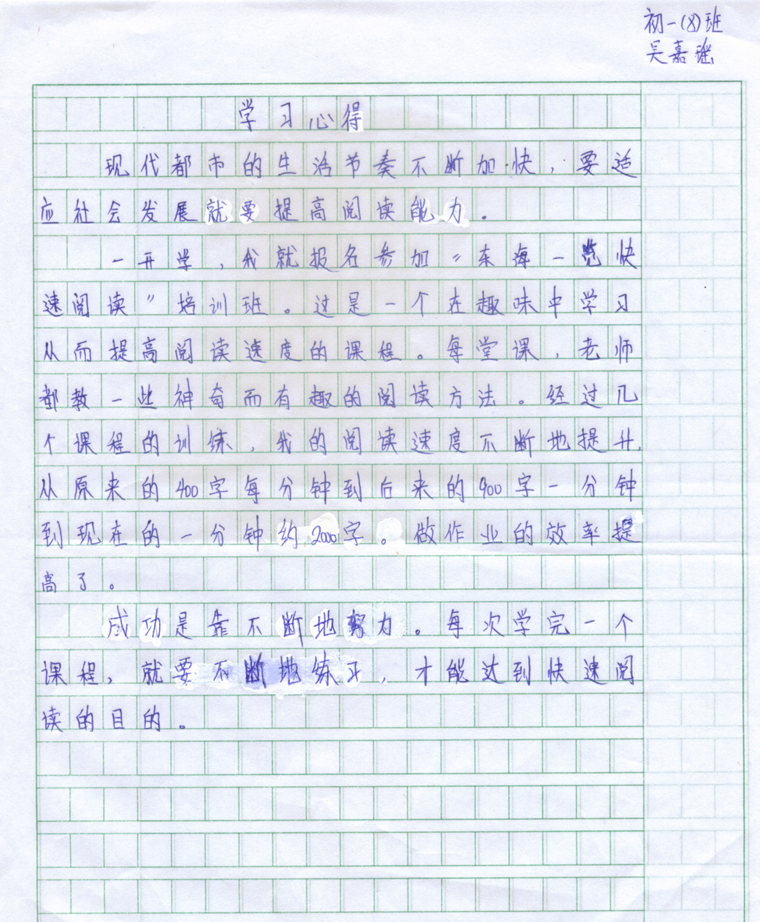 初一(8)班
吴嘉瑶
学习心得
现代都市的生活节奏不断加快，要适
应社会发展就要提高阅读能力。
一开学，我就报名参加“东海一览快
速阅读”培训班。这是一个在趣味中学习
从而提高阅读速度的课程。每堂课，老师
都教一些神奇而有趣的阅读方法。经过几
个课程的训练，我的阅读速度不断地提升，
从原来的400字每分钟到后来的900字一分钟
到现在的一分钟约2000字。做作业的效率提
高了。
成功是靠不断地努力。每次学完一个
课程，就要不断地练习，才能达到快速阅
读的目的。